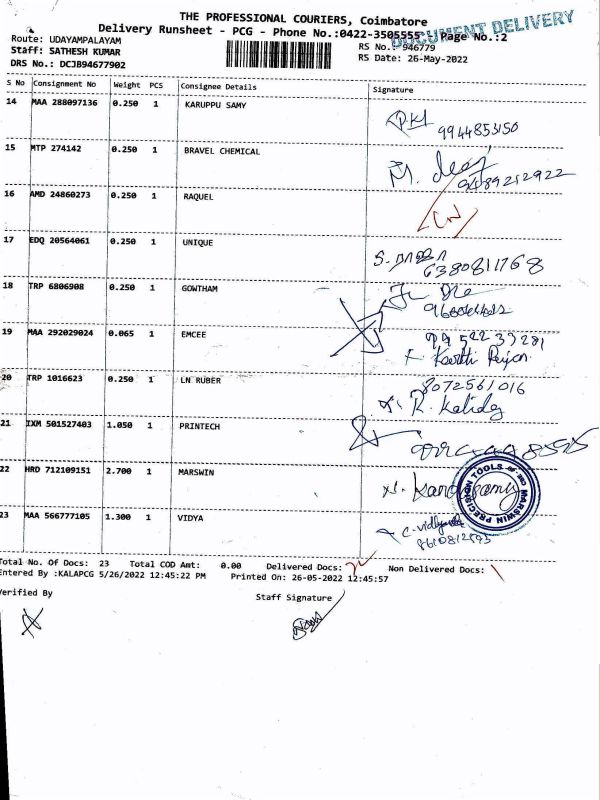 THE PROFESSIONAL COURIERS, Coimbatore
Delivery Runsheet - PCG - Phone No.:0422-3505555 Page No.:2
DOCUMENT DELIVERY
Route: UDAYAMPALAYAM
RS No.: 946779
Staff: SATHESH KUMAR
RS Date: 26-May-2022
DRS No.: DCJB94677902
S No Consignment No Weight PCS Consignee Details Signature
14 MAA 288097136 0.250 1 KARUPPU SAMY
9944853150
15 MTP 274142 0.250 1 BRAVEL CHEMICAL
9489212922
16 AMD 24860273 0.250 1 RAQUEL
17 EDQ 20564061 0.250 1 UNIQUE
6380811768
18 TRP 6806908 0.250 1 GOWTHAM
19 MAA 292029024 0.065 1 EMCEE
9952233281
20 TRP 1016623 0.250 1 LN RUBER
8072561016
21 IXM 501527403 1.050 1 PRINTECH
22 HRD 712109151 2.700 1 MARSWIN
MARSWIN PRECISION TOOLS
23 MAA 566777105 1.300 1 VIDYA
Total No. Of Docs: 23 Total COD Amt: 0.00 Delivered Docs: Non Delivered Docs:
Entered By :KALAPCG 5/26/2022 12:45:22 PM Printed On: 26-05-2022 12:45:57
Verified By
Staff Signature